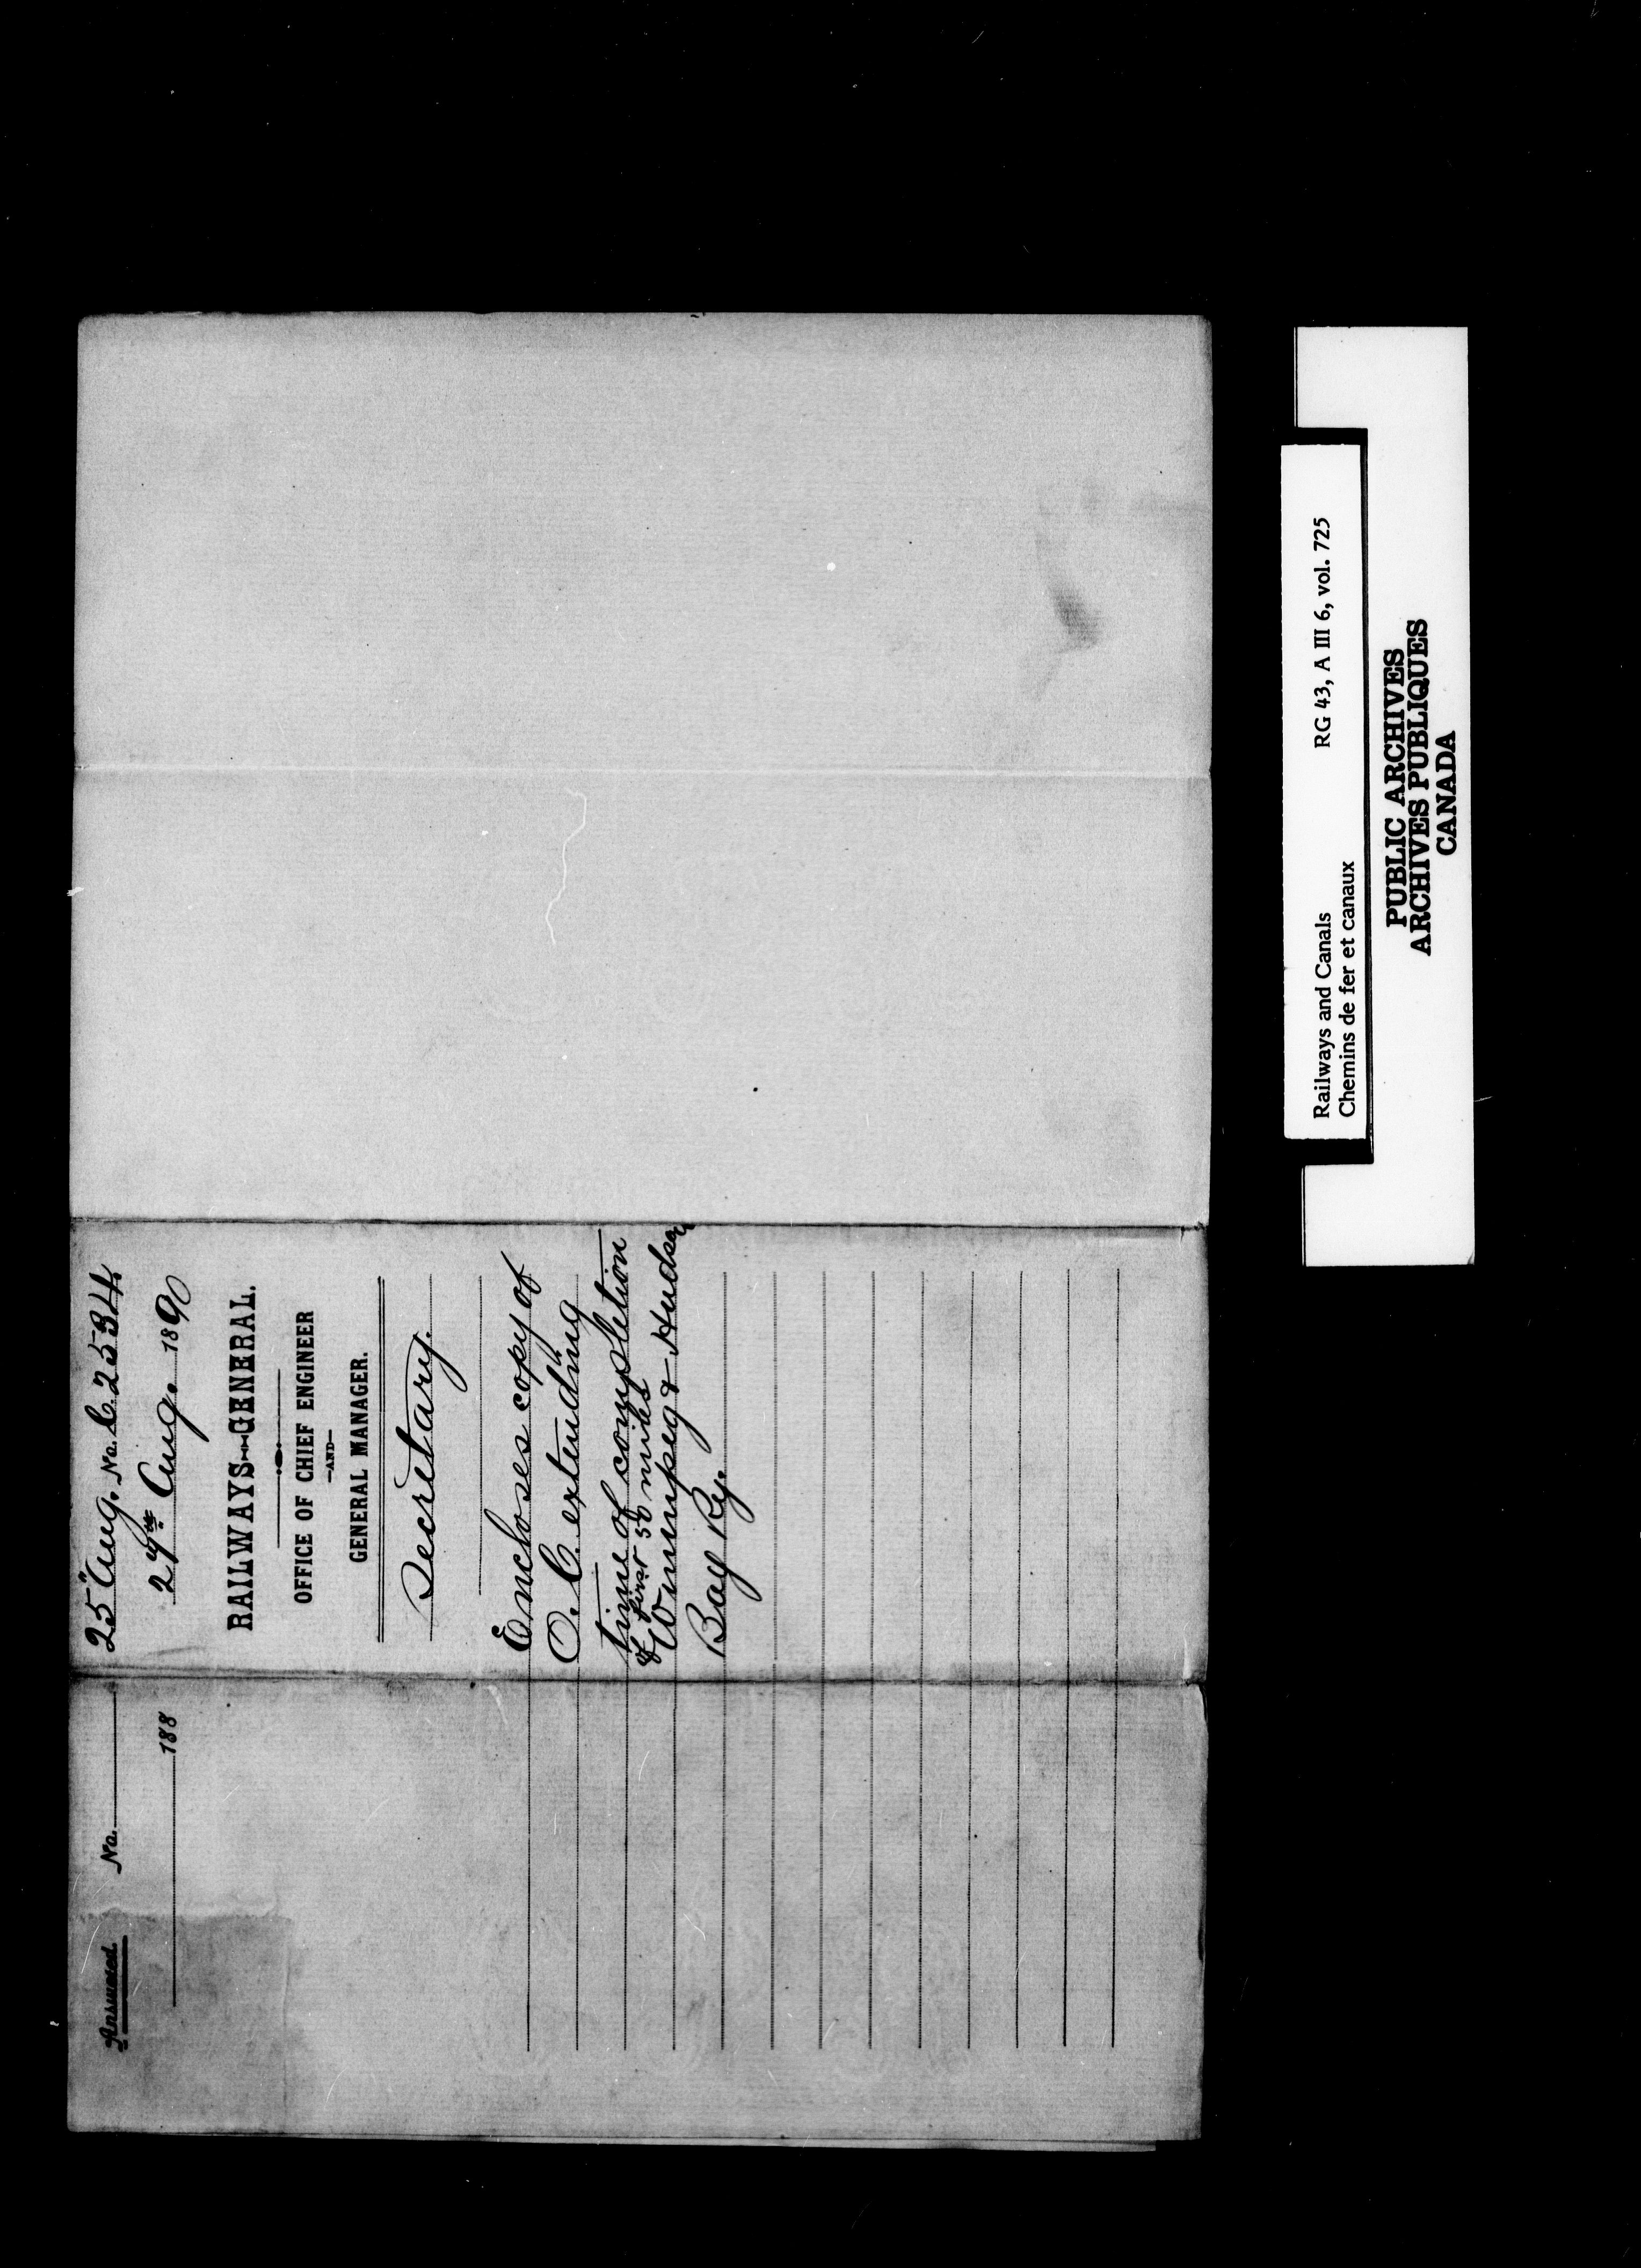 25" Aug. No. C. 2534
27th Aug. 1890
RAILWAYS-GENERAL.
OFFICE OF CHIEF ENGINEER
-AND-
GENERAL MANAGER.
Secretary.
Encloses copy of
O. C. extending
time of completion
of first 50 miles
Winnipeg & Hudson
Bay Ry.
Answered. No.
188
Railways and Canals RG 43, A III 6, vol. 725
Chemins de fer et canaux
PUBLIC ARCHIVES
ARCHIVES PUBLIQUES
CANADA